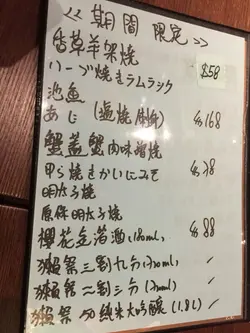 <<期間限定>>
香草羊架燒
ハーブ焼きラムラック $58
池魚
あじ (塩焼 刺身) $168
蟹蓋蟹肉味噌燒
甲ら焼きかにみそ $38
明太子燒
原條明太子燒 $88
櫻花金箔酒(180mL)
獺祭三割九分(720mL)
獺祭 二割三分(720mL)
獺祭 50 純米大吟醸 (1.8L)